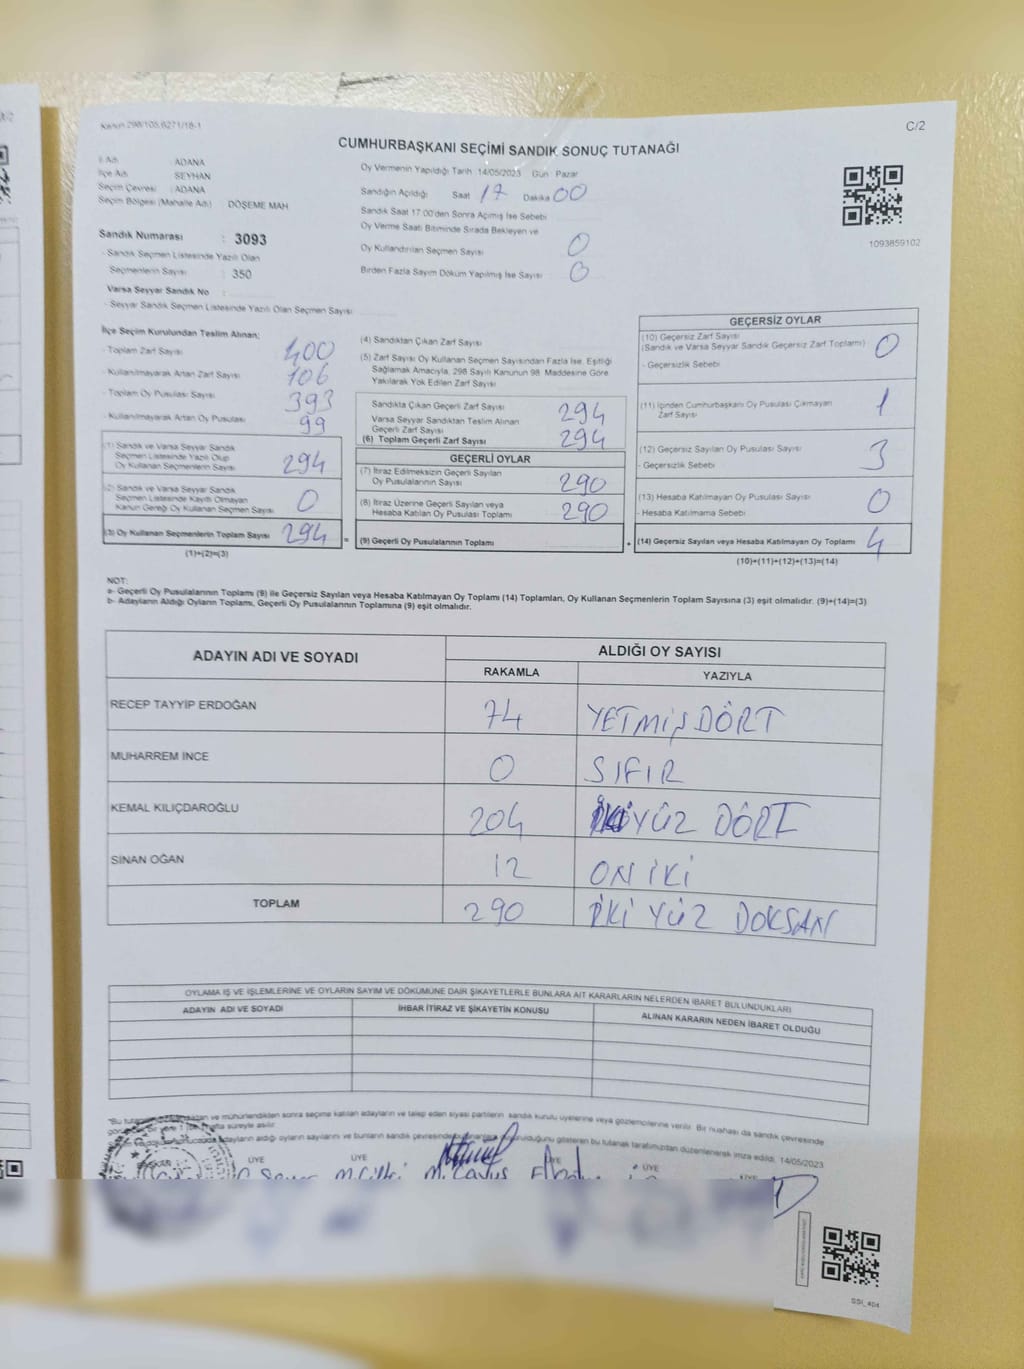 Kanun 298/105,6271/18-1
C/2
CUMHURBAŞKANI SEÇİMİ SANDIK SONUÇ TUTANAĞI
İl Adı : ADANA
İlçe Adı : SEYHAN
Seçim Çevresi : ADANA
Seçim Bölgesi (Mahalle Adı) DÖŞEME MAH
Sandık Numarası : 3093
- Sandık Seçmen Listesinde Yazılı Olan
Seçmenlerin Sayısı : 350
Varsa Seyyar Sandık No :
- Seyyar Sandık Seçmen Listesinde Yazılı Olan Seçmen Sayısı
Oy Vermenin Yapıldığı Tarih 14/05/2023 Gün Pazar
Sandığın Açıldığı Saat 17 Dakika 00
Sandık Saat 17:00'den Sonra Açılmış İse Sebebi
Oy Verme Saati Bitiminde Sırada Bekleyen ve
Oy Kullandırılan Seçmen Sayısı 0
Birden Fazla Sayım Döküm Yapılmış İse Sayısı 0
1093859102
İlçe Seçim Kurulundan Teslim Alınan;
- Toplam Zarf Sayısı 400
- Kullanılmayarak Artan Zarf Sayısı 106
- Toplam Oy Pusulası Sayısı 393
- Kullanılmayarak Artan Oy Pusulası 99
(1) Sandık ve Varsa Seyyar Sandık
Seçmen Listesinde Yazılı Olup
Oy Kullanan Seçmenlerin Sayısı 294
(2) Sandık ve Varsa Seyyar Sandık
Seçmen Listesinde Kayıtlı Olmayan
Kanun Gereği Oy Kullanan Seçmen Sayısı 0
(3) Oy Kullanan Seçmenlerin Toplam Sayısı 294 =
(1)+(2)=(3)
(4) Sandıktan Çıkan Zarf Sayısı
(5) Zarf Sayısı Oy Kullanan Seçmen Sayısından Fazla İse, Eşitliği
Sağlamak Amacıyla, 298 Sayılı Kanunun 98. Maddesine Göre
Yakılarak Yok Edilen Zarf Sayısı
Sandıkta Çıkan Geçerli Zarf Sayısı 294
Varsa Seyyar Sandıktan Teslim Alınan
Geçerli Zarf Sayısı
(6) Toplam Geçerli Zarf Sayısı 294
GEÇERLİ OYLAR
(7) İtiraz Edilmeksizin Geçerli Sayılan
Oy Pusulalarının Sayısı 290
(8) İtiraz Üzerine Geçerli Sayılan veya
Hesaba Katılan Oy Pusulası Toplamı 290
(9) Geçerli Oy Pusulalarının Toplamı +
GEÇERSİZ OYLAR
(10) Geçersiz Zarf Sayısı
(Sandık ve Varsa Seyyar Sandık Geçersiz Zarf Toplamı) 0
- Geçersizlik Sebebi
(11) İçinden Cumhurbaşkanı Oy Pusulası Çıkmayan
Zarf Sayısı 1
(12) Geçersiz Sayılan Oy Pusulası Sayısı 3
- Geçersizlik Sebebi
(13) Hesaba Katılmayan Oy Pusulası Sayısı 0
- Hesaba Katılmama Sebebi
(14) Geçersiz Sayılan veya Hesaba Katılmayan Oy Toplamı 4
(10)+(11)+(12)+(13)=(14)
NOT:
a- Geçerli Oy Pusulalarının Toplamı (9) ile Geçersiz Sayılan veya Hesaba Katılmayan Oy Toplamı (14) Toplamları, Oy Kullanan Seçmenlerin Toplam Sayısına (3) eşit olmalıdır. (9)+(14)=(3)
b- Adayların Aldığı Oyların Toplamı, Geçerli Oy Pusulalarının Toplamına (9) eşit olmalıdır.
ADAYIN ADI VE SOYADI ALDIĞI OY SAYISI
RAKAMLA YAZIYLA
RECEP TAYYİP ERDOĞAN 74 YETMİŞ DÖRT
MUHARREM İNCE 0 SIFIR
KEMAL KILIÇDAROĞLU 204 İKİ YÜZ DÖRT
SİNAN OĞAN 12 ON İKİ
TOPLAM 290 İKİ YÜZ DOKSAN
OYLAMA İŞ VE İŞLEMLERİNE VE OYLARIN SAYIM VE DÖKÜMÜNE DAİR ŞİKAYETLERLE BUNLARA AİT KARARLARIN NELERDEN İBARET BULUNDUKLARI
ADAYIN ADI VE SOYADI İHBAR İTİRAZ VE ŞİKAYETİN KONUSU ALINAN KARARIN NEDEN İBARET OLDUĞU
"Bu ve mühürlendikten sonra seçime katılan adayların ve talep eden siyasi partilerin sandık kurulu üyelerine veya gözlemcilerine verilir. Bir nüshası da sandık çevresinde
süreyle asılır.
adayların aldığı oyların sayılarını ve bunların sandık çevresinde olduğunu gösteren bu tutanak tarafımızdan düzenlenerek imza edildi. 14/05/2023
BAŞKAN ÜYE ÜYE ÜYE ÜYE ÜYE
SSI_404